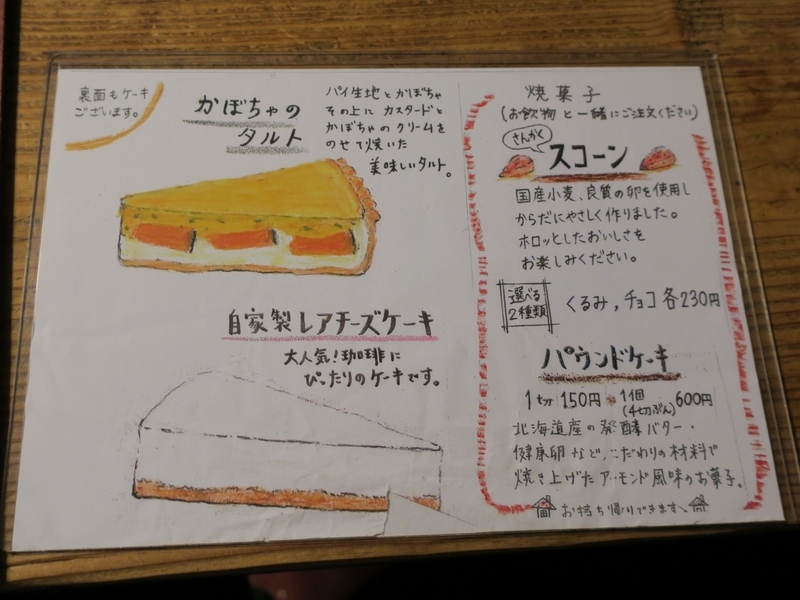 裏面もケーキ
ございます。
かぼちゃの
タルト
パイ生地とかぼちゃ
その上にカスタードと
かぼちゃのクリームを
のせて焼いた
美味しいタルト。
自家製レアチーズケーキ
大人気!珈琲に
ぴったりのケーキです。
焼菓子
(お飲物と一緒にご注文ください)
さんかく
スコーン
国産小麦、良質の卵を使用し
からだにやさしく作りました。
ホロッとしたおいしさを
お楽しみください。
選べる
2種類
くるみ,チョコ 各230円
パウンドケーキ
1切 150円 1個 600円
(4切ぶん)
北海道産の発酵バター・
健康卵など、こだわりの材料で
焼き上げたアーモンド風味のお菓子。
お持ち帰りできます